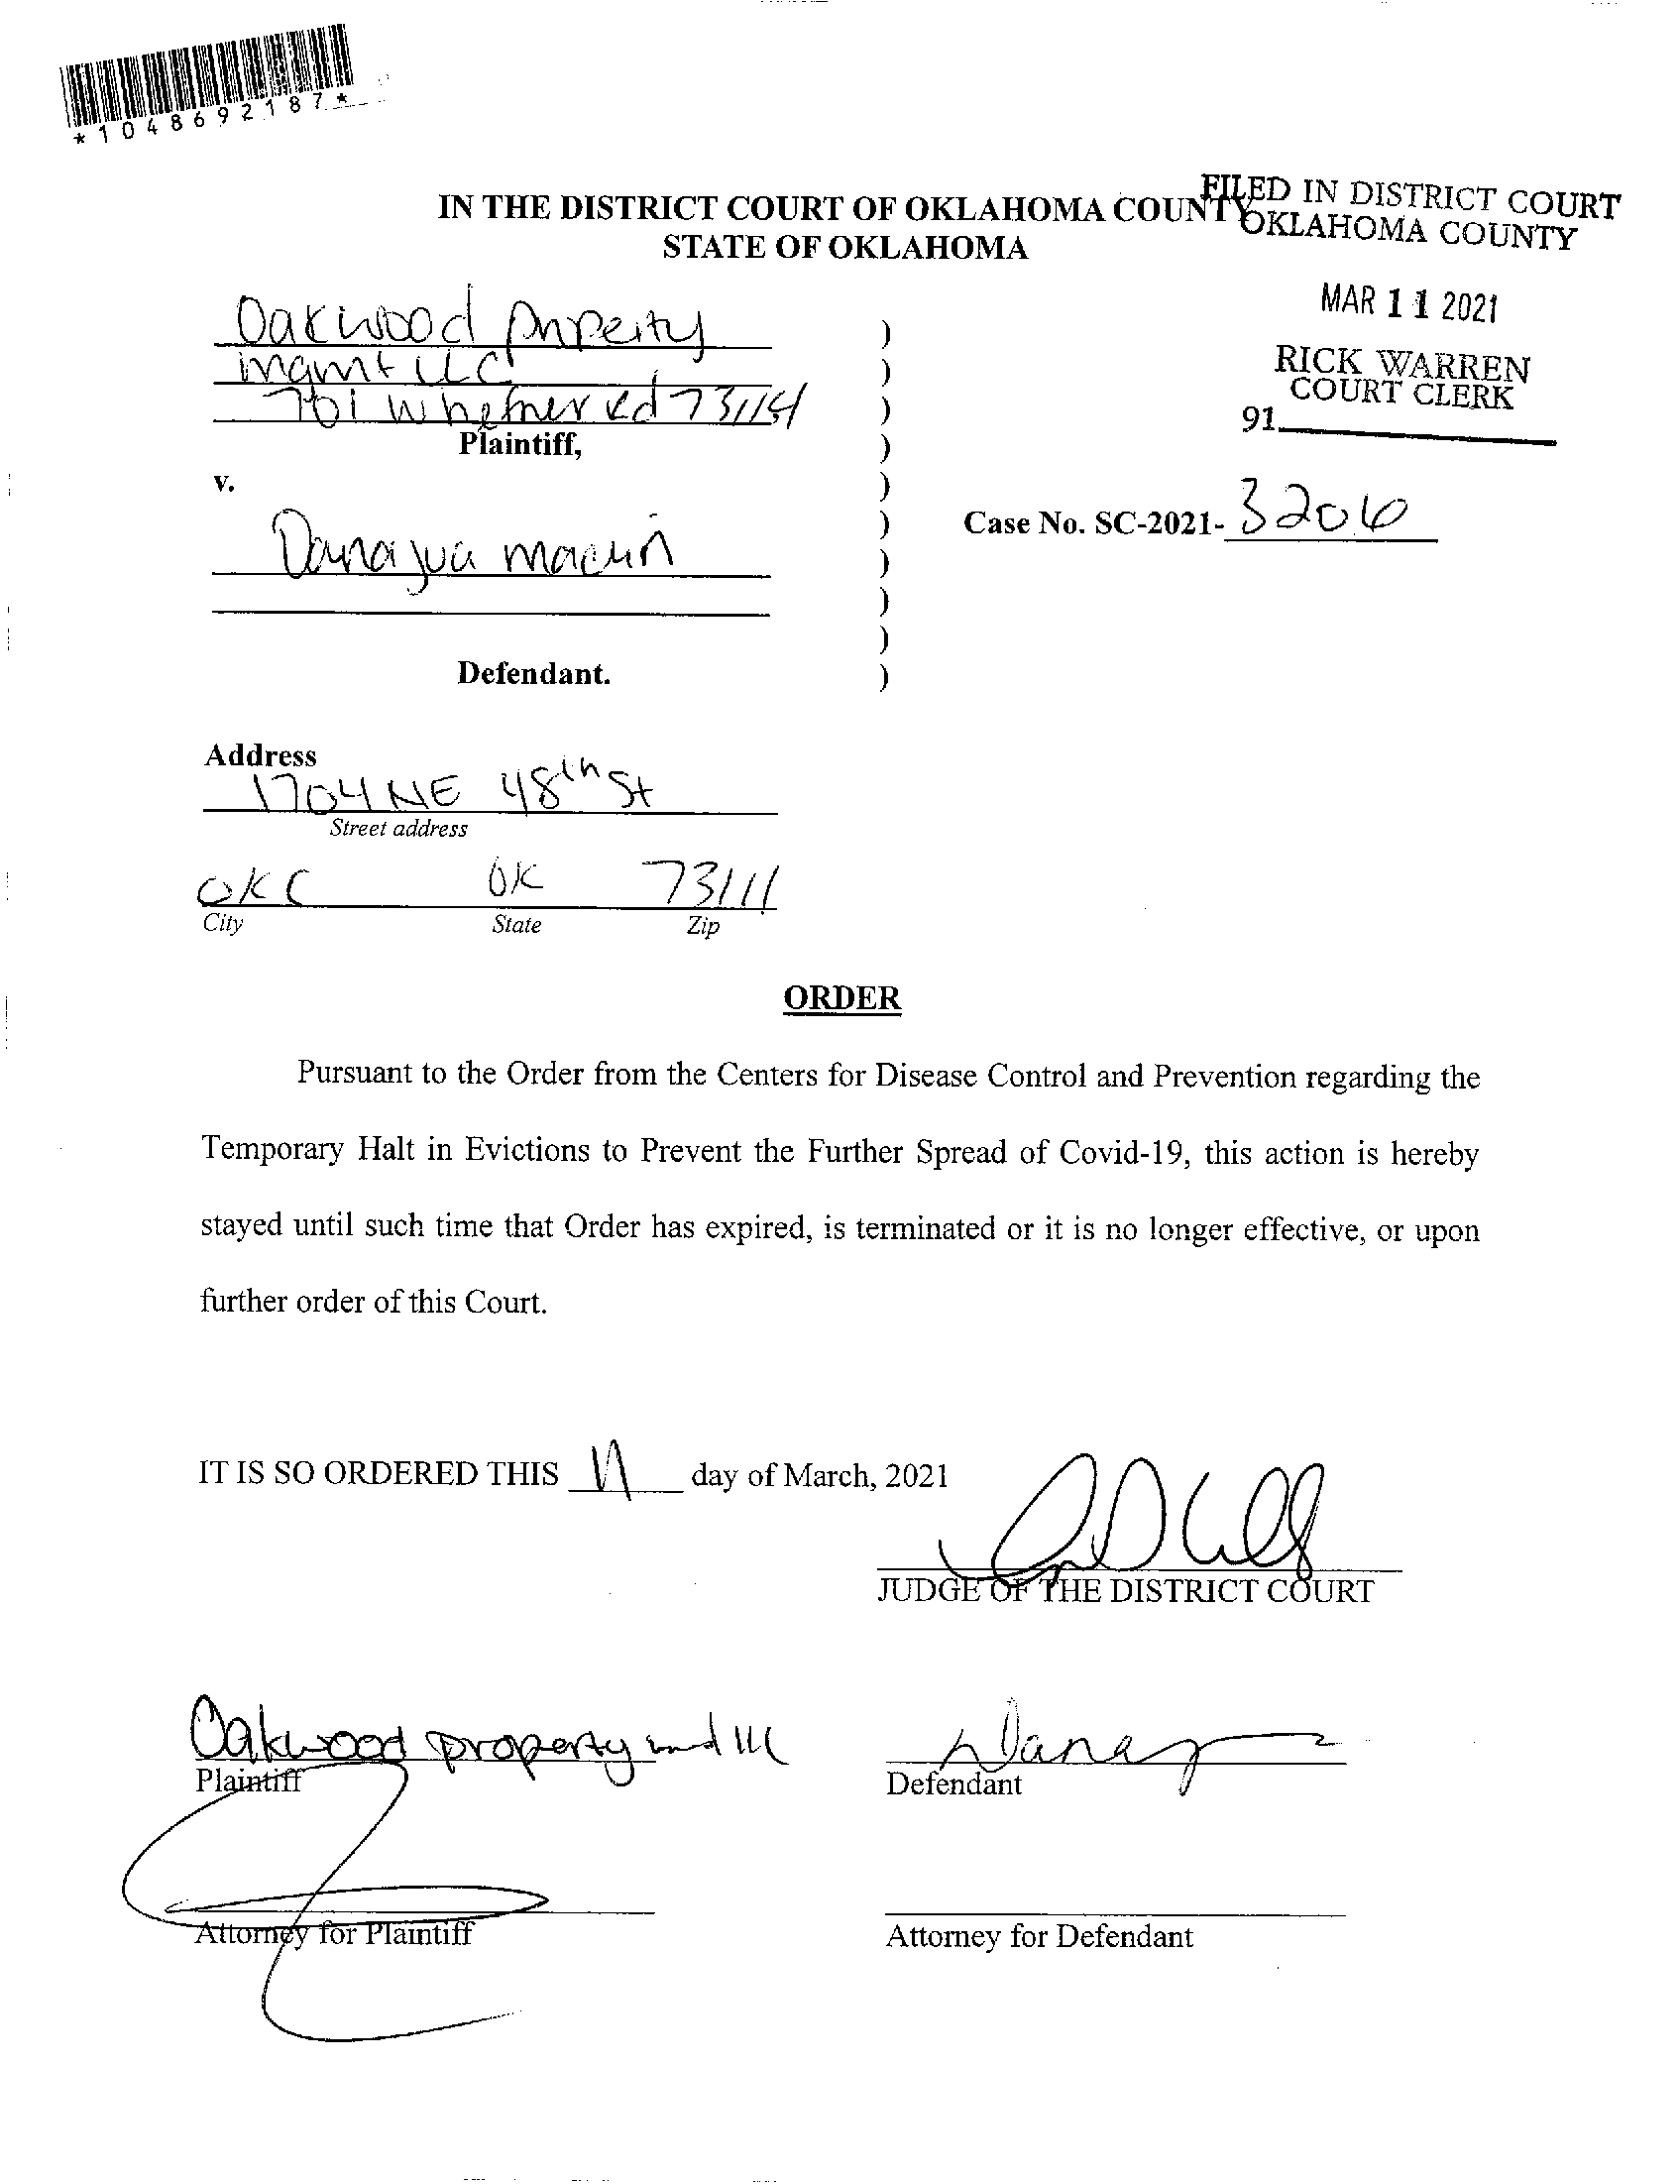 *1048692187*
IN THE DISTRICT COURT OF OKLAHOMA COUNTY
STATE OF OKLAHOMA
FILED IN DISTRICT COURT
OKLAHOMA COUNTY
MAR 11 2021
RICK WARREN
COURT CLERK
91
Oakwood Property
mgmt LLC
701 W hefner rd 73114
Plaintiff,
v.
Case No. SC-2021-3206
Defendant.
)
)
)
)
)
)
)
)
)
)
Address
1704 NE 48th St
Street address
OKC OK 73111
City State Zip
ORDER
Pursuant to the Order from the Centers for Disease Control and Prevention regarding the
Temporary Halt in Evictions to Prevent the Further Spread of Covid-19, this action is hereby
stayed until such time that Order has expired, is terminated or it is no longer effective, or upon
further order of this Court.
IT IS SO ORDERED THIS 11 day of March, 2021
JUDGE OF THE DISTRICT COURT
Oakwood property
Plaintiff
Defendant
Attorney for Plaintiff
Attorney for Defendant